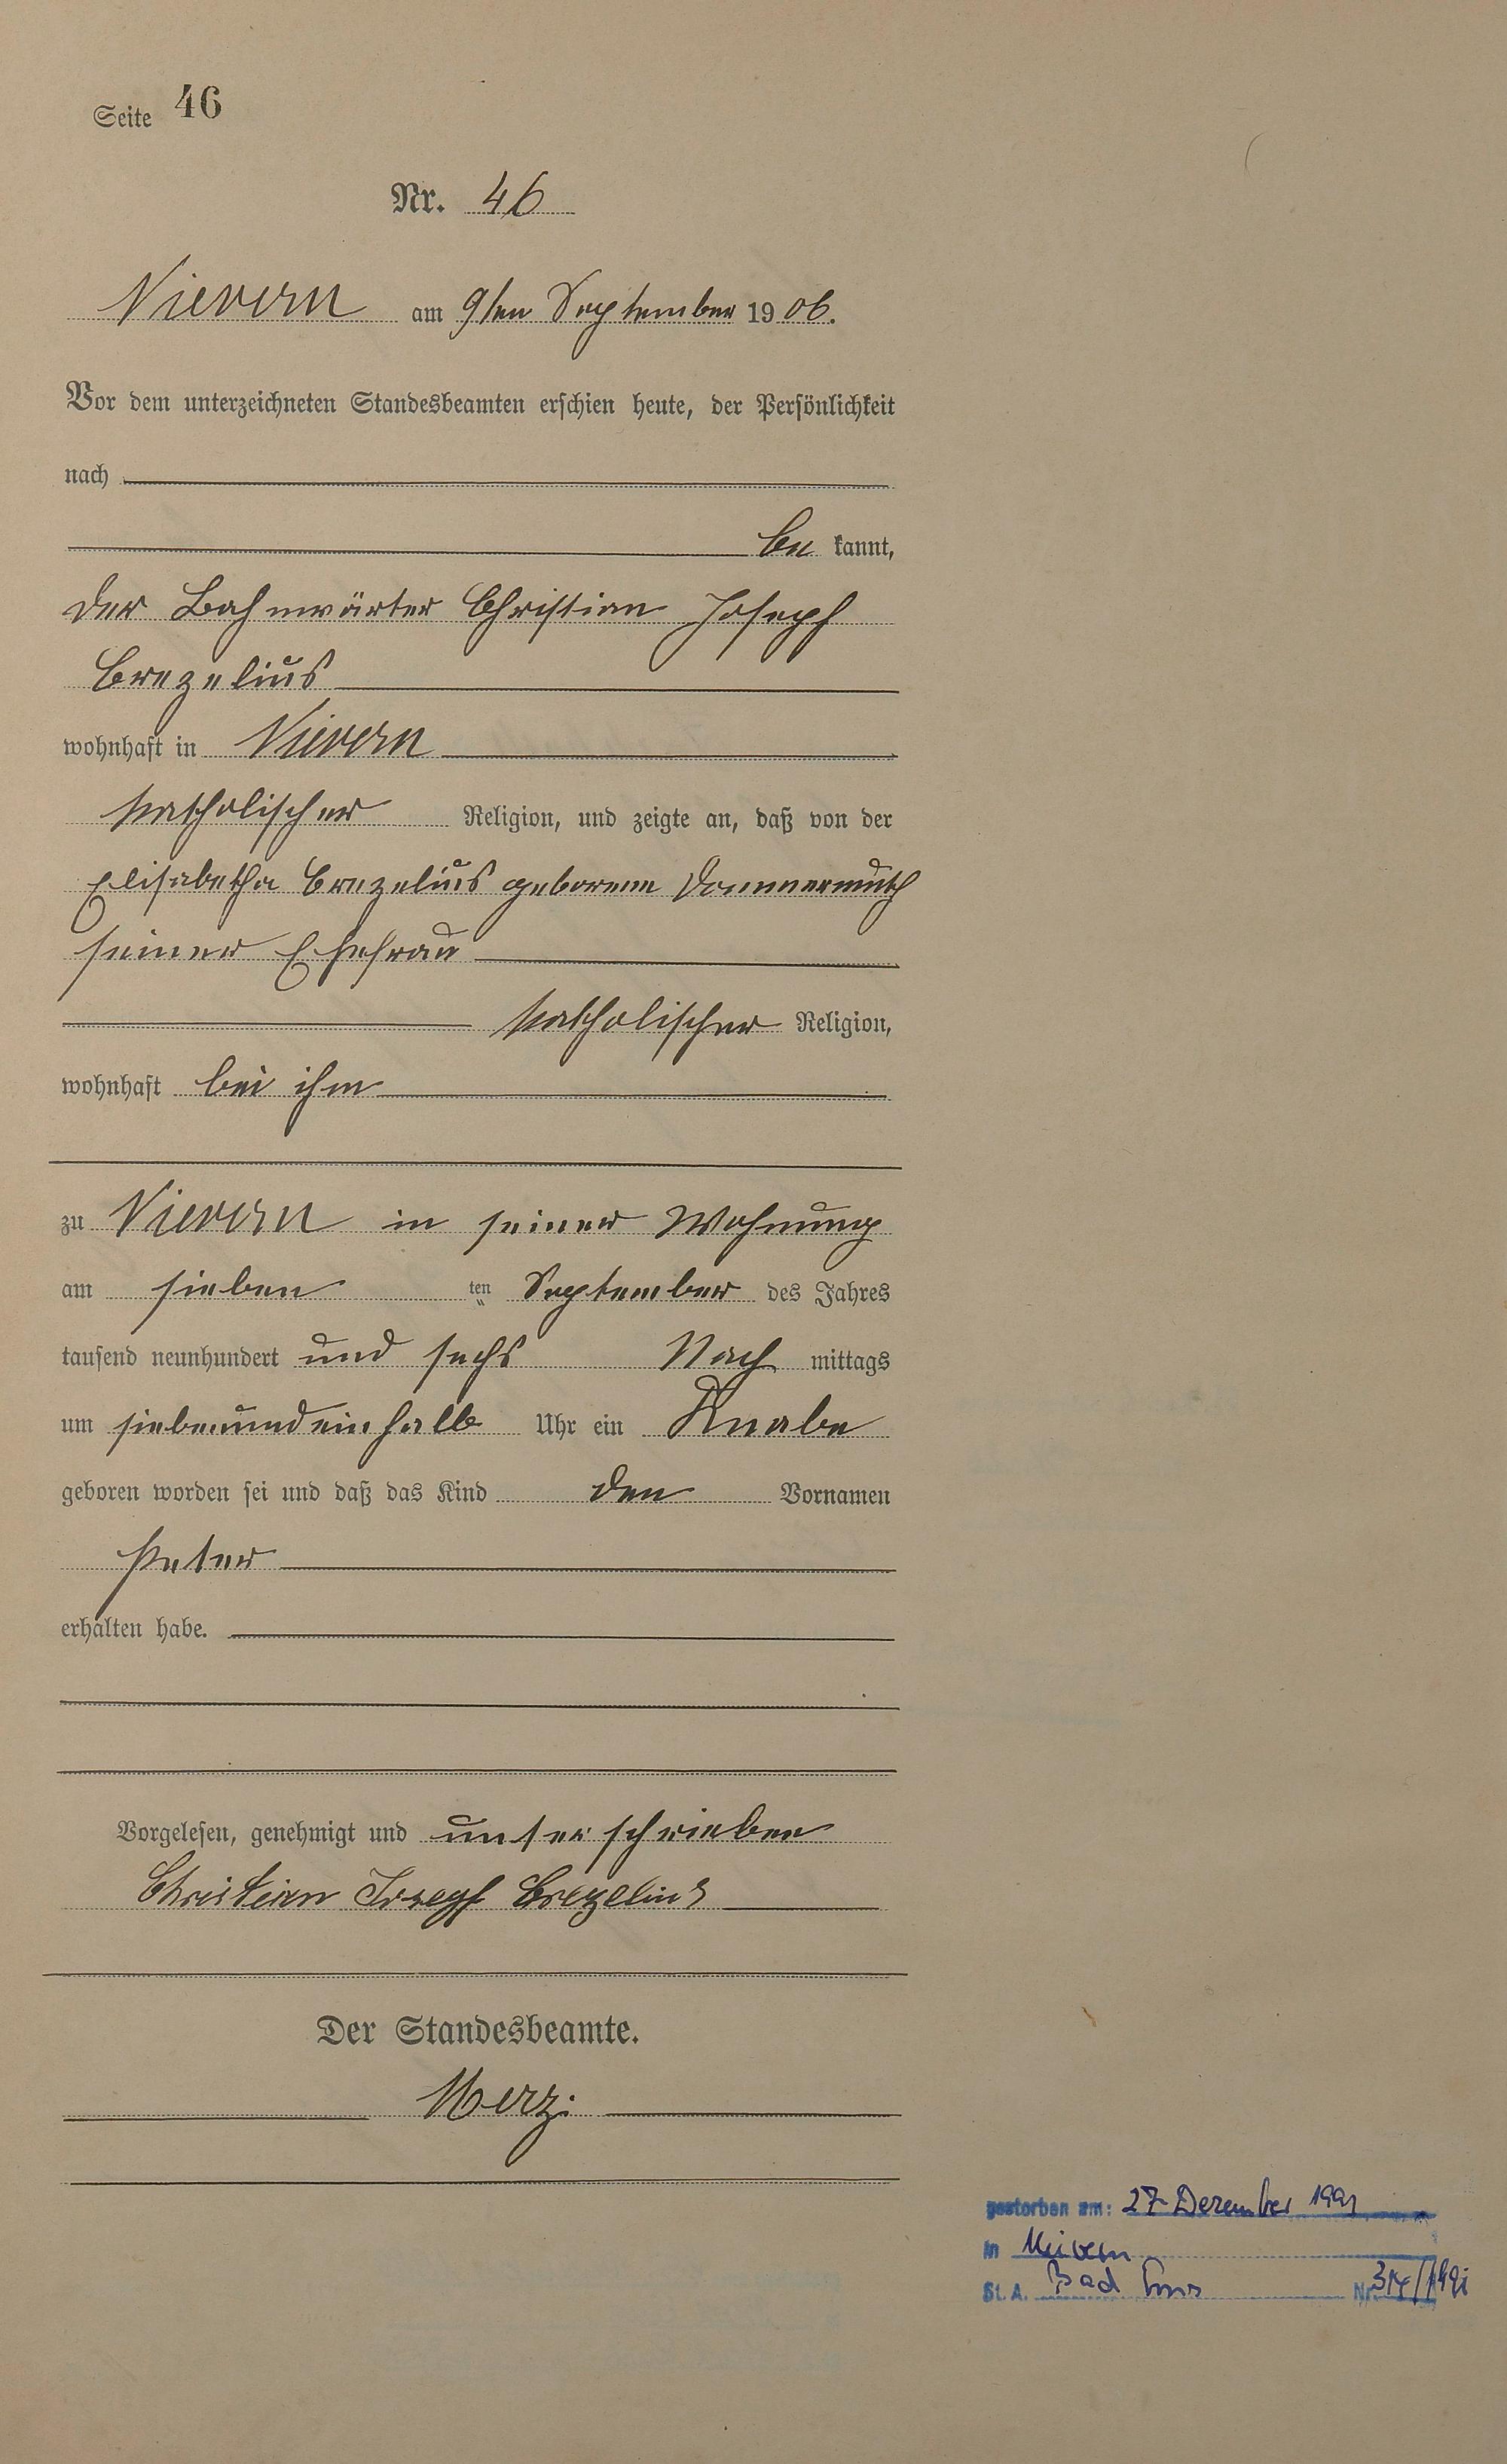 Seite 46
Nr. 46
Nievern am 9ten September 1906.
Vor dem unterzeichneten Standesbeamten erschien heute, der Persönlichkeit
nach
be kannt,
der Bahnwärter Christian Joseph
Crezelius
wohnhaft in Nievern
katholischer Religion, und zeigte an, daß von der
Elisabetha Crezelius geborene Donnermuth
seiner Ehefrau
katholischer Religion,
wohnhaft bei ihm
zu Nievern in seiner Wohnung
am sieben ten September des Jahres
tausend neunhundert und sechs Nach mittags
um siebenundeinhalb Uhr ein Knabe
geboren worden sei und daß das Kind den Vornamen
Peter
erhalten habe.
Vorgelesen, genehmigt und unterschrieben
Christian Josepf Crezelius
Der Standesbeamte.
Merz.
gestorben am: 27. Dezember 1991
in Nievern
St. A. Bad Ems Nr. /1991